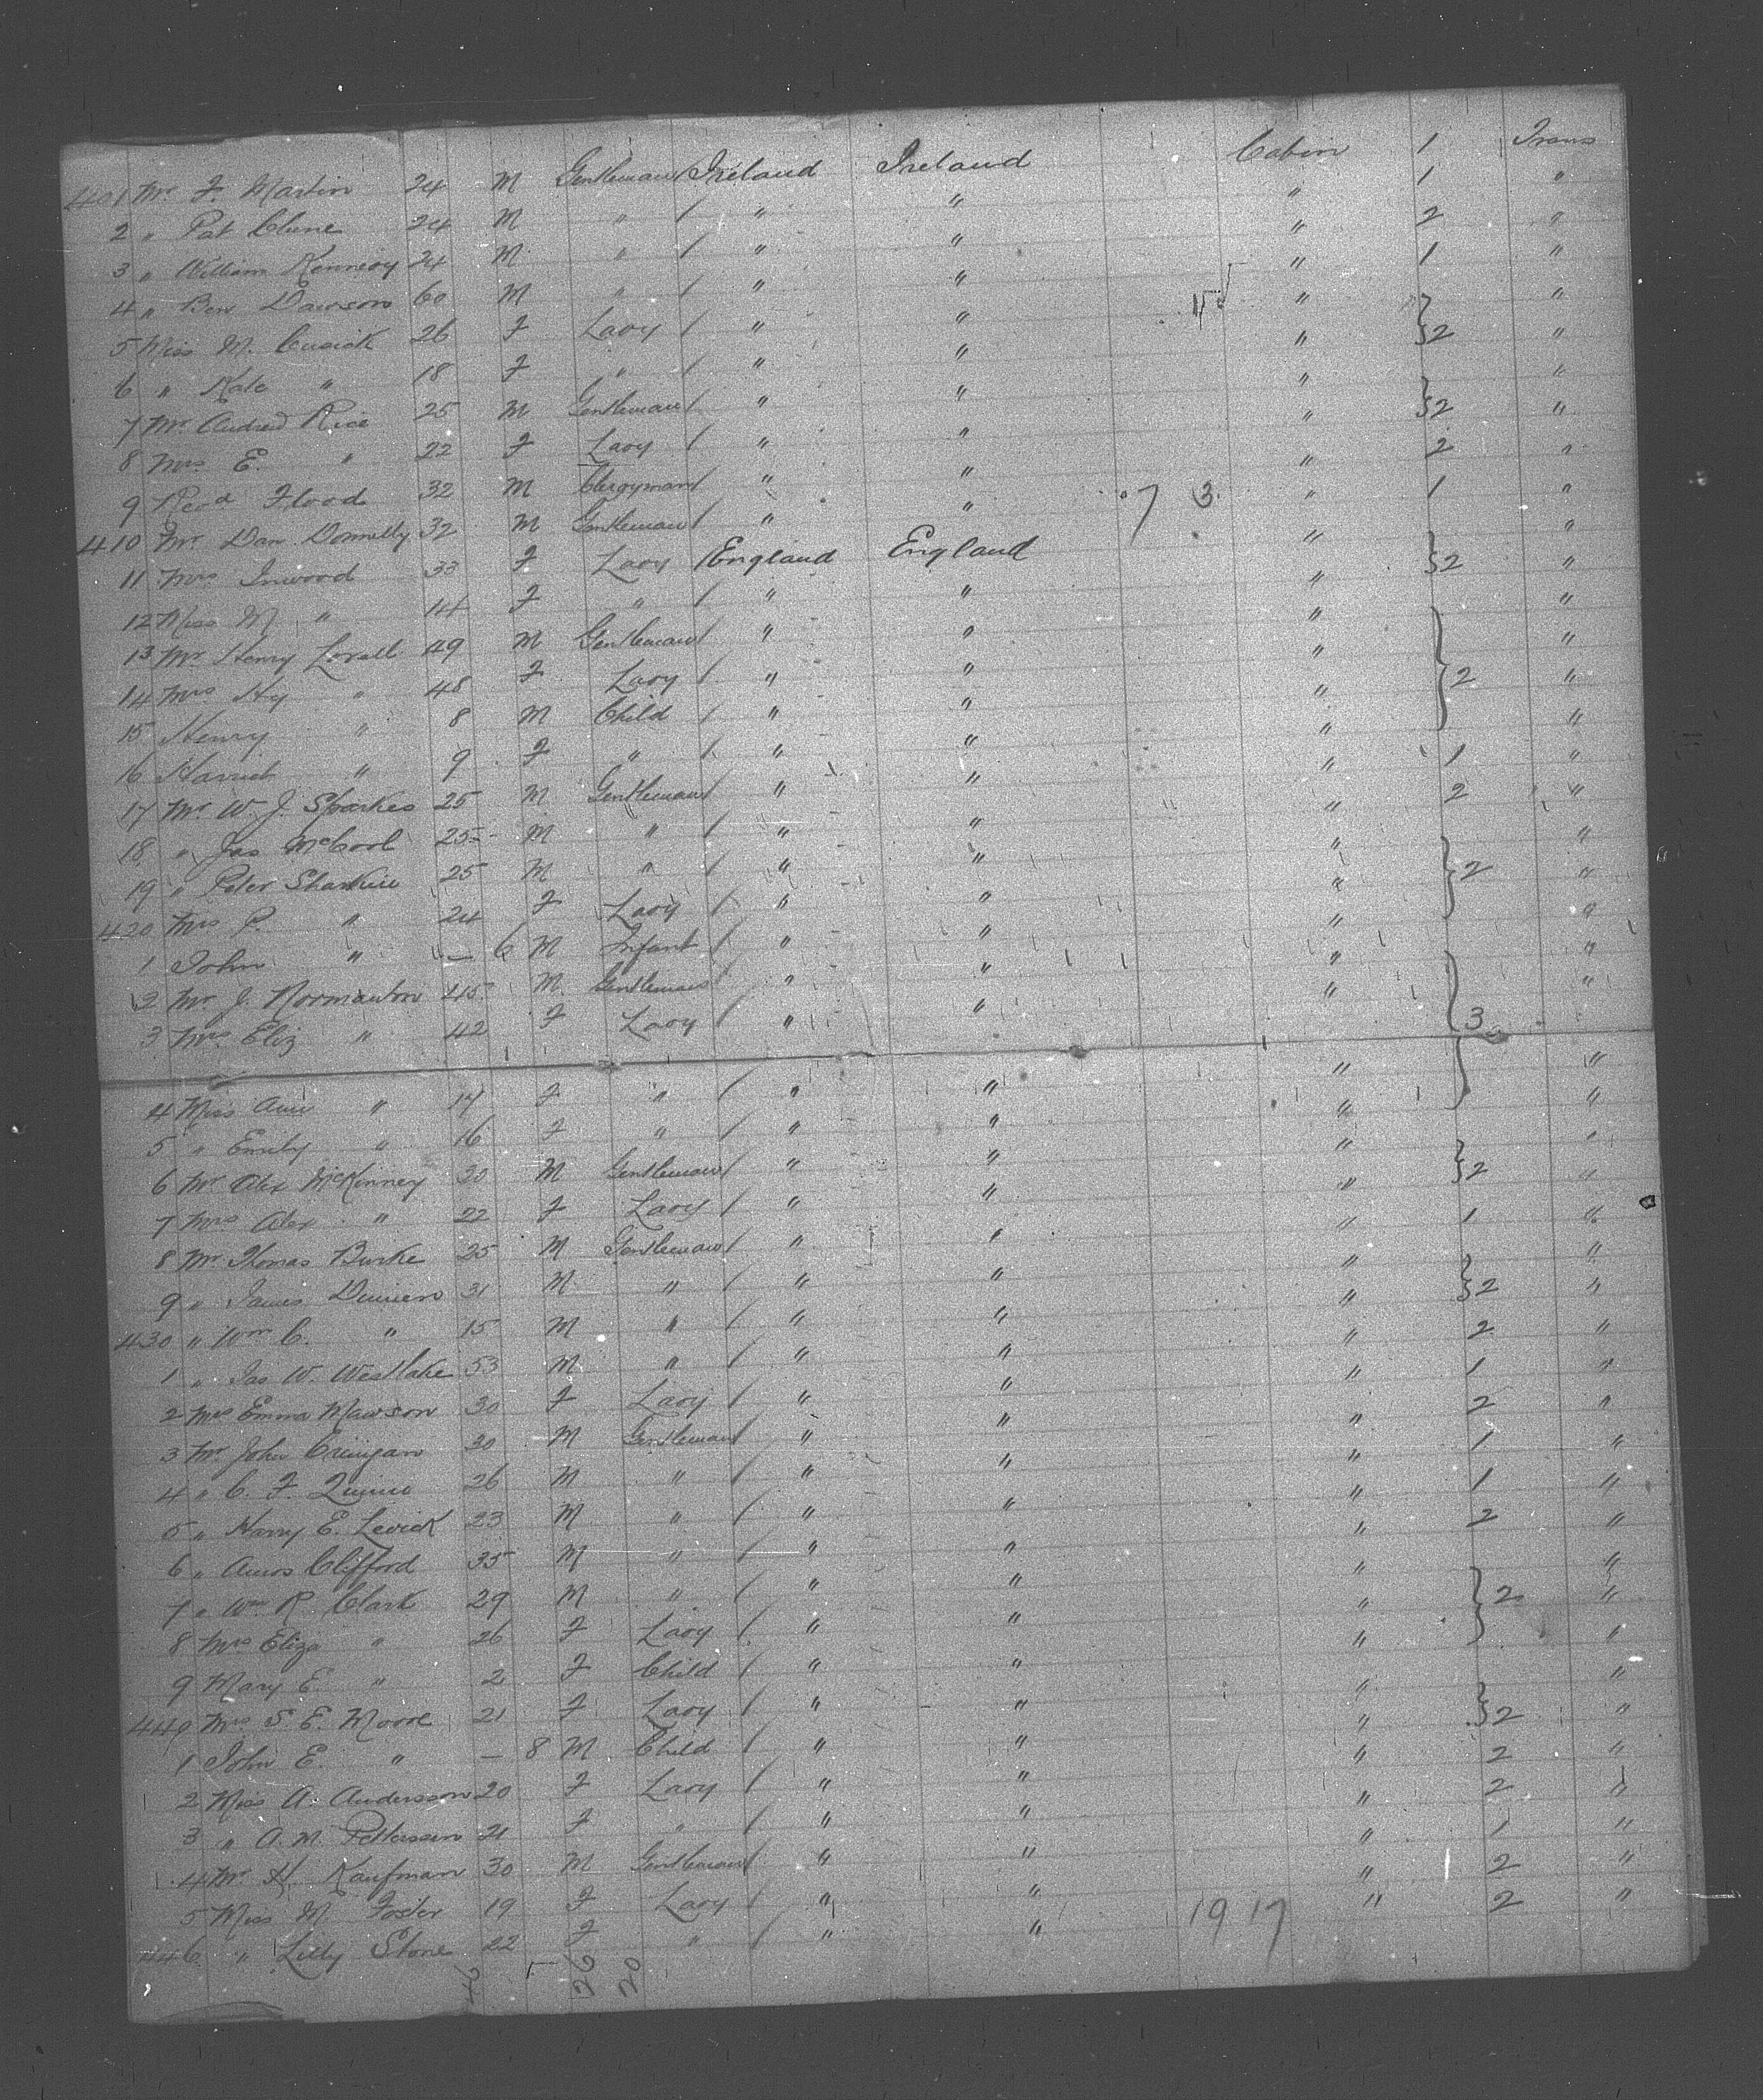 401 Mr F. Martin 24 M Gentleman / Ireland Ireland Cabin 1 Trans
2 " Pat Clune 24 M " / " " " 1 "
3 " William Kennedy 24 M " / " " " 2 "
4 " Ben Dawson 60 M " / " " " 1 "
5 Miss M. Cusick 26 F Lady / " " " } 2 "
6 " Kate " 18 F " / " " " "
7 Mr Andrew Rice 25 M Gentleman / " " " } 2 "
8 Mrs E. " 22 F Lady / " " " "
9 Revd Flood 32 M Clergyman / " " " 2 "
410 Mr Dan Donnelly 32 M Gentleman / " " 7 3 " 1 "
11 Mrs Inwood 33 F Lady / England England " } 2 "
12 Miss M " 14 F " / " " " "
13 Mr Henry Lovell 49 M Gentleman / " " " } 2 "
14 Mrs Hy " 48 F Lady / " " " "
15 Henry " 8 M Child / " " " "
16 Harriet " 9 F " / " " " "
17 Mr W. J. Sparkes 25 M Gentleman / " " " 1 "
18 " Jas McCool 25 M " / " " " 2 "
19 " Peter 25 M " / " " " } 2 "
420 Mrs P. " 24 F Lady / " " " "
1 John " — 6 M Infant / " " " "
2 Mr J. Normanton 45 M Gentleman / " " " } 3 "
3 Mrs Eliz " 42 F Lady / " " " "
4 Miss Ann " 17 F " / " " " "
5 " Emily " 16 F " / " " " "
6 Mr Alex McKinney 20 M Gentleman / " " " } 2 "
7 Mrs Alex " 22 F Lady / " " " "
8 Mr Thomas Burke 25 M Gentleman / " " " 1 "
9 " James 31 M " / " " " } 2 "
430 " Wm C. " 15 M " / " " " "
1 " Jas W. Westlake 53 M " / " " " 2 "
2 Mrs Emma Mawson 30 F Lady / " " " 1 "
3 Mr John 30 M Gentleman / " " " 2 "
4 " C. F. Quinn 26 M " / " " " 1 "
5 " Harry E. Levick 23 M " / " " " 1 "
6 " Amos Clifford 35 M " / " " " 2 "
7 " Wm R. Clark 29 M " / " " " } 2 "
8 Mrs Eliza " 26 F Lady / " " " "
9 Mary E. " 2 F Child / " " " "
440 Mrs S. E. Moore 21 F Lady / " " " } 2 "
1 John E. " — 8 M Child / " " " "
2 Miss A. Andersson 20 F Lady / " " " 2 "
3 " A. M. Pettersson 21 F " / " " " 2 "
4 Mr H. Kaufman 30 M Gentleman / " " " 1 "
5 Miss M Foster 19 F Lady / " " " 2 "
446 " Lilly Stone 22 F " / " " 19 17 " 2 "
26 20